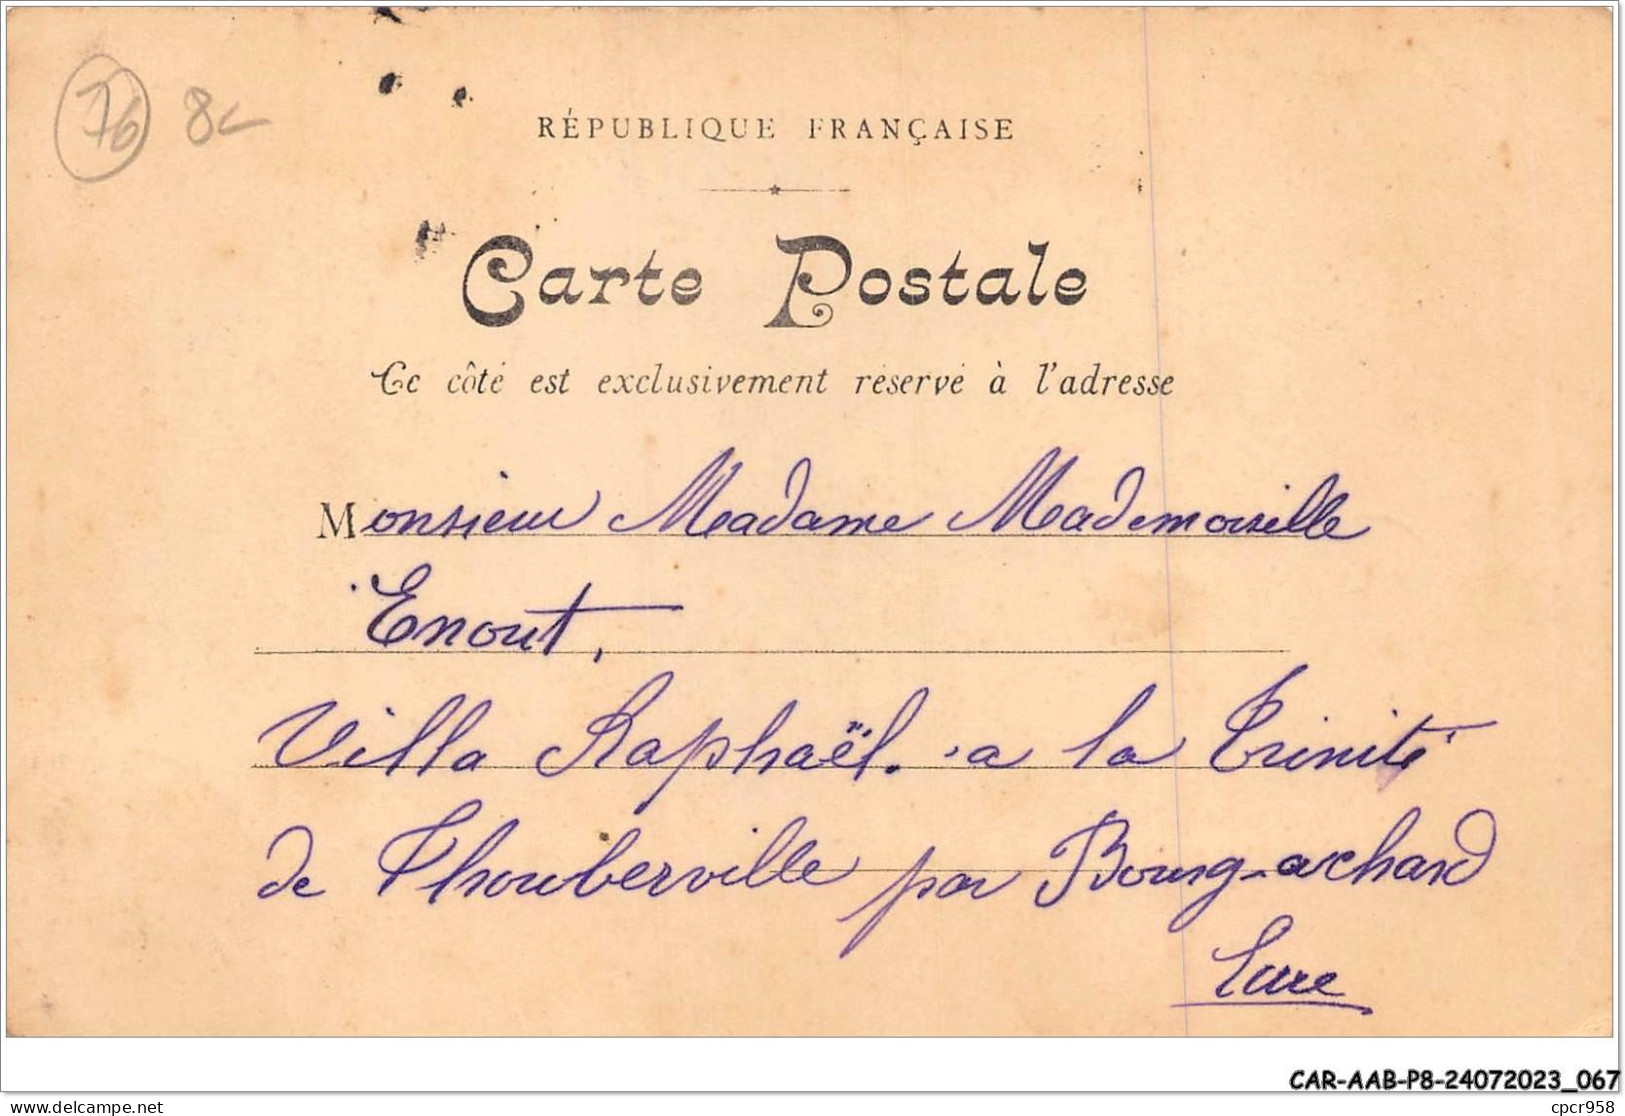 76 8c
RÉPUBLIQUE FRANÇAISE
Carte Postale
Ce côté est exclusivement réservé à l'adresse
Monsieur Madame Mademoiselle
Enout,
Villa Raphaël. a la Trinité
de Thouberville par Bourg-achard
Eure
CAR-AAB-P8-24072023_067
delcampe.net
cpcr958